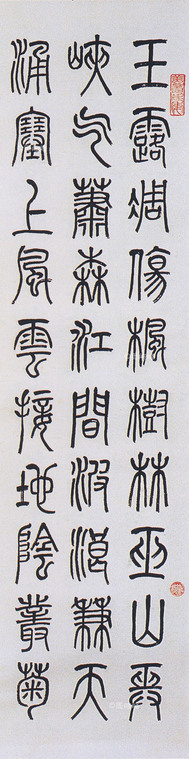 玉露凋傷楓樹林巫山巫
峽气蕭森江間波浪兼天
涌塞上風雲接地陰叢菊